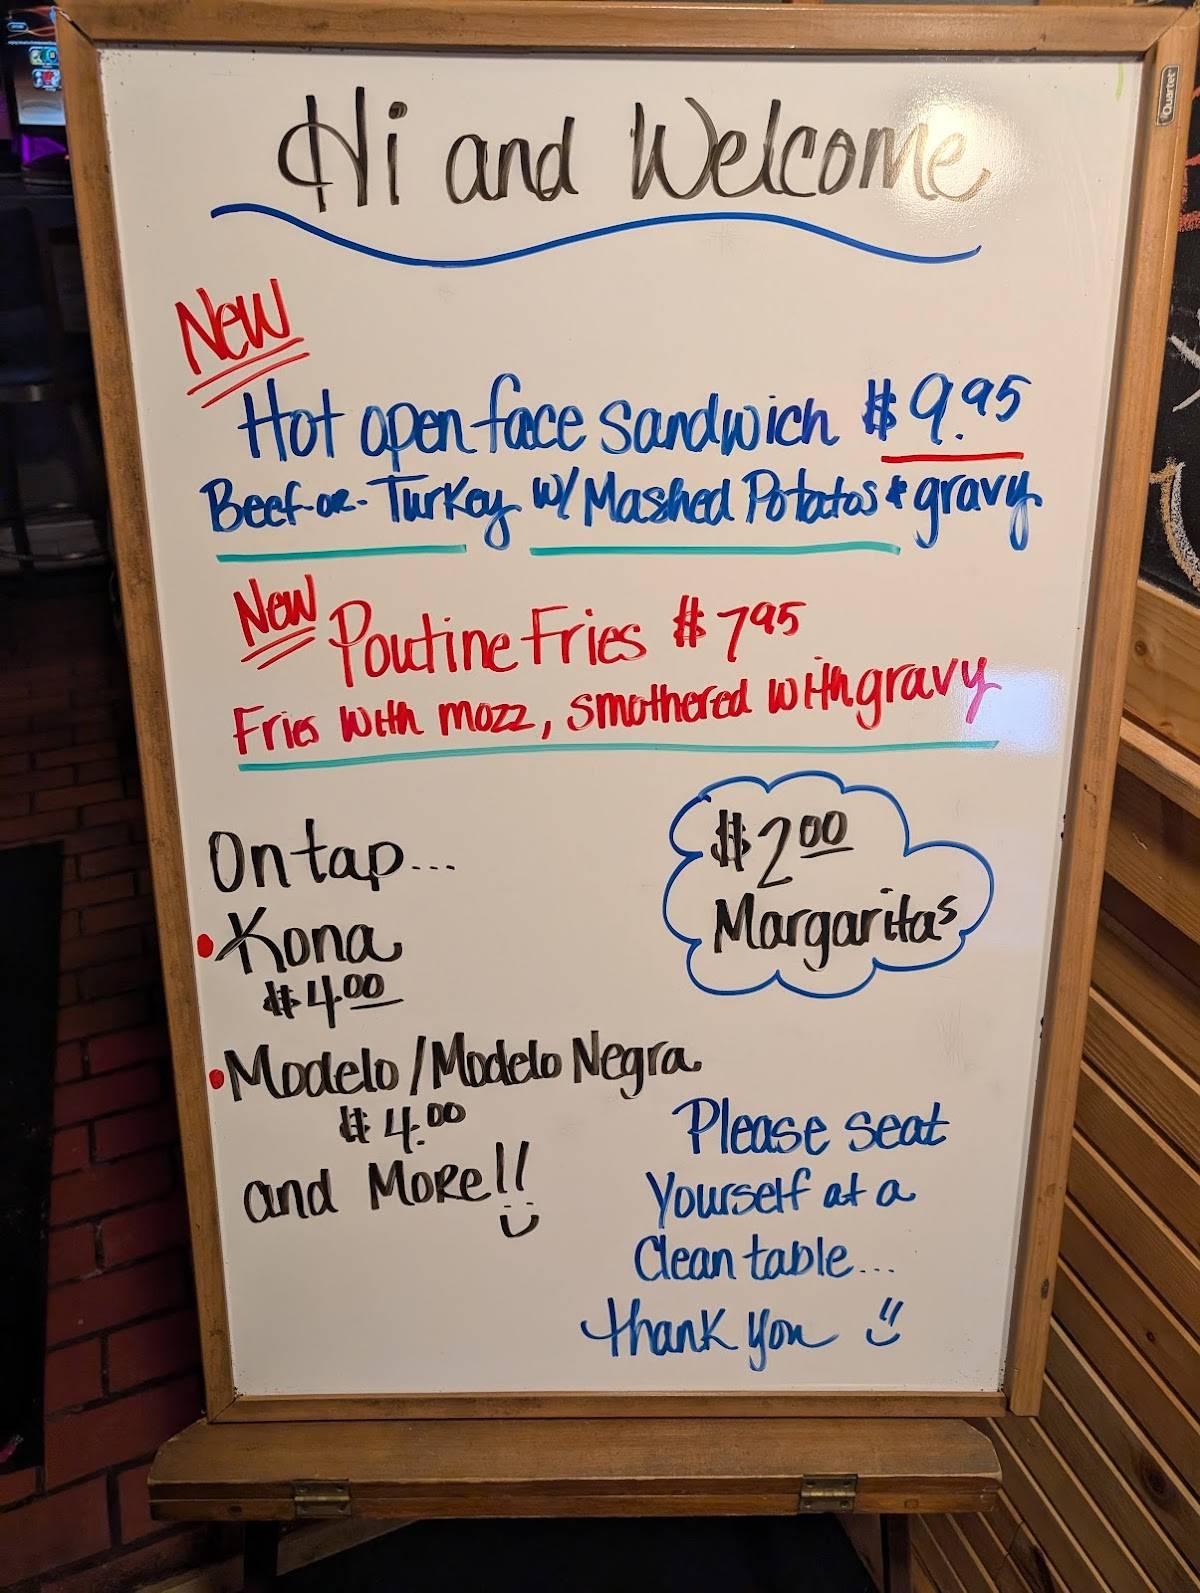 Quartet
Hi and Welcome
New
Hot open face sandwich $9.95
Beef-or-Turkey w/ Mashed Potatos & gravy.
New Poutine Fries $7.95
Fries with mozz, smothered with gravy
On tap...
$2.00
Margaritas
• Kona
$4.00
• Modelo / Modelo Negra
$4.00
and More!!
Please seat
Yourself at a
Clean table...
thank you